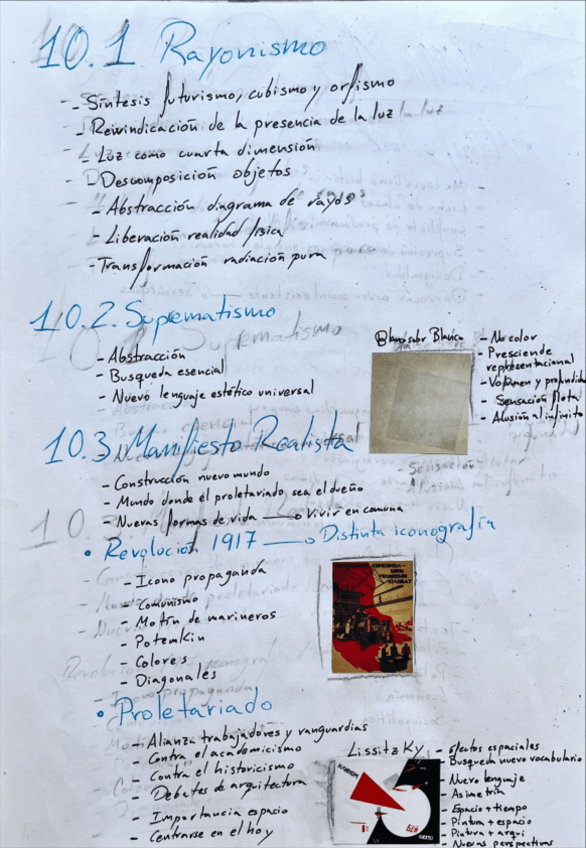 10.1 Rayonismo
- Síntesis futurismo, cubismo y orfismo
- Reivindicación de la presencia de la luz
- Luz como cuarta dimensión
- Descomposición objetos
- Abstracción diagrama de rayos
- Liberación realidad física
- Transformación radiación pura
10.2. Suprematismo
- Abstracción
- Busqueda esencial
- Nuevo lenguaje estético universal
Blanco sobre Blanco
- No color
- Presciende
representacional
- Volumen y profundid
- Sensación flota
- Alusión al infinito
10.3 Manifiesto Realista
- Construcción nuevo mundo
- Mundo donde el proletariado sea el dueño
- Nuevas formas de vida —o Vivir en comuna
• Revolución 1917 —o Distinta iconografía
- Icono propaganda
- Comunismo
- Motín de marineros
- Potemkin
- Colores
- Diagonales
• Proletariado
- Alianza trabajadores y vanguardias
- Contra el academicismo
- Contra el historicismo
- Debates de arquitectura
- Importancia espacio
- Centrarse en el hoy
Lissitzky
- Efectos espaciales
- Busqueda nuevo vocabulario
- Nuevo lenguaje
- Asimetría
- Espacio + tiempo
- Pintura + espacio
- Pintura + arqui
- Nuevas perspectivas